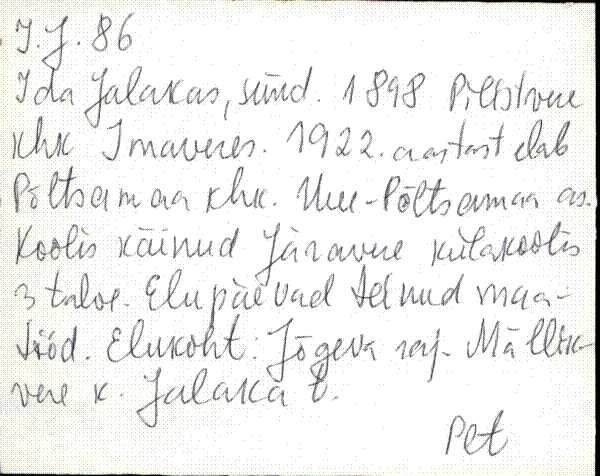 I. J. 86
Ida Jalakas, sünd. 1898 Pilistvere
khk Imaveres. 1922. aastast elab
Põltsamaa khk. Uue-Põltsamaa as.
Koolis käinud Järavere külakoolis
3 talve. Elupäevad teinud maa-
tööd. Elukoht: Jõgeva raj. Mällik-
vere k. Jalaka t.
Pet